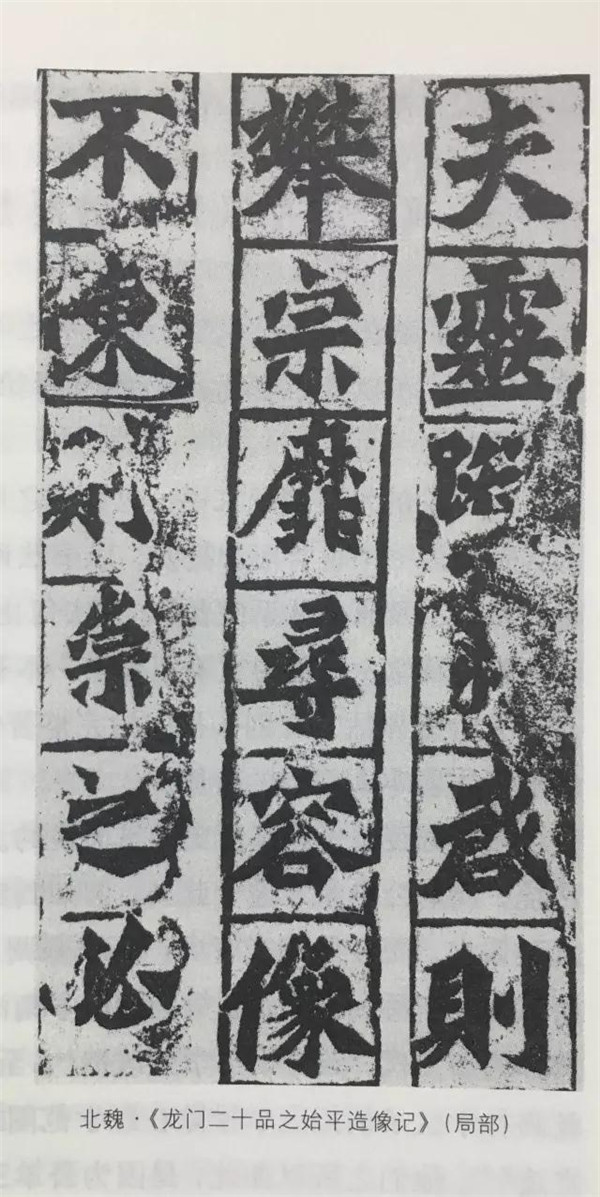 夫靈蹤啓則
攀宗靡尋容像
不陳則崇之必
北魏·《龙门二十品之始平造像记》(局部)